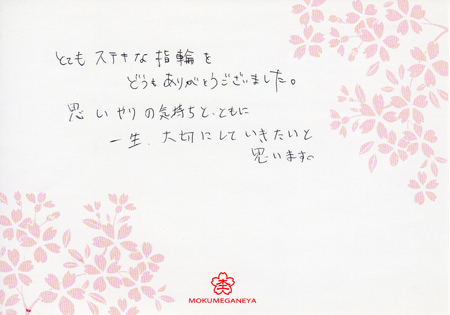 とても ステキな 指輪を
どうも ありがとうございました。
思いやりの気持ちと、ともに
一生、大切にしていきたいと
思います。
MOKUMEGANEYA